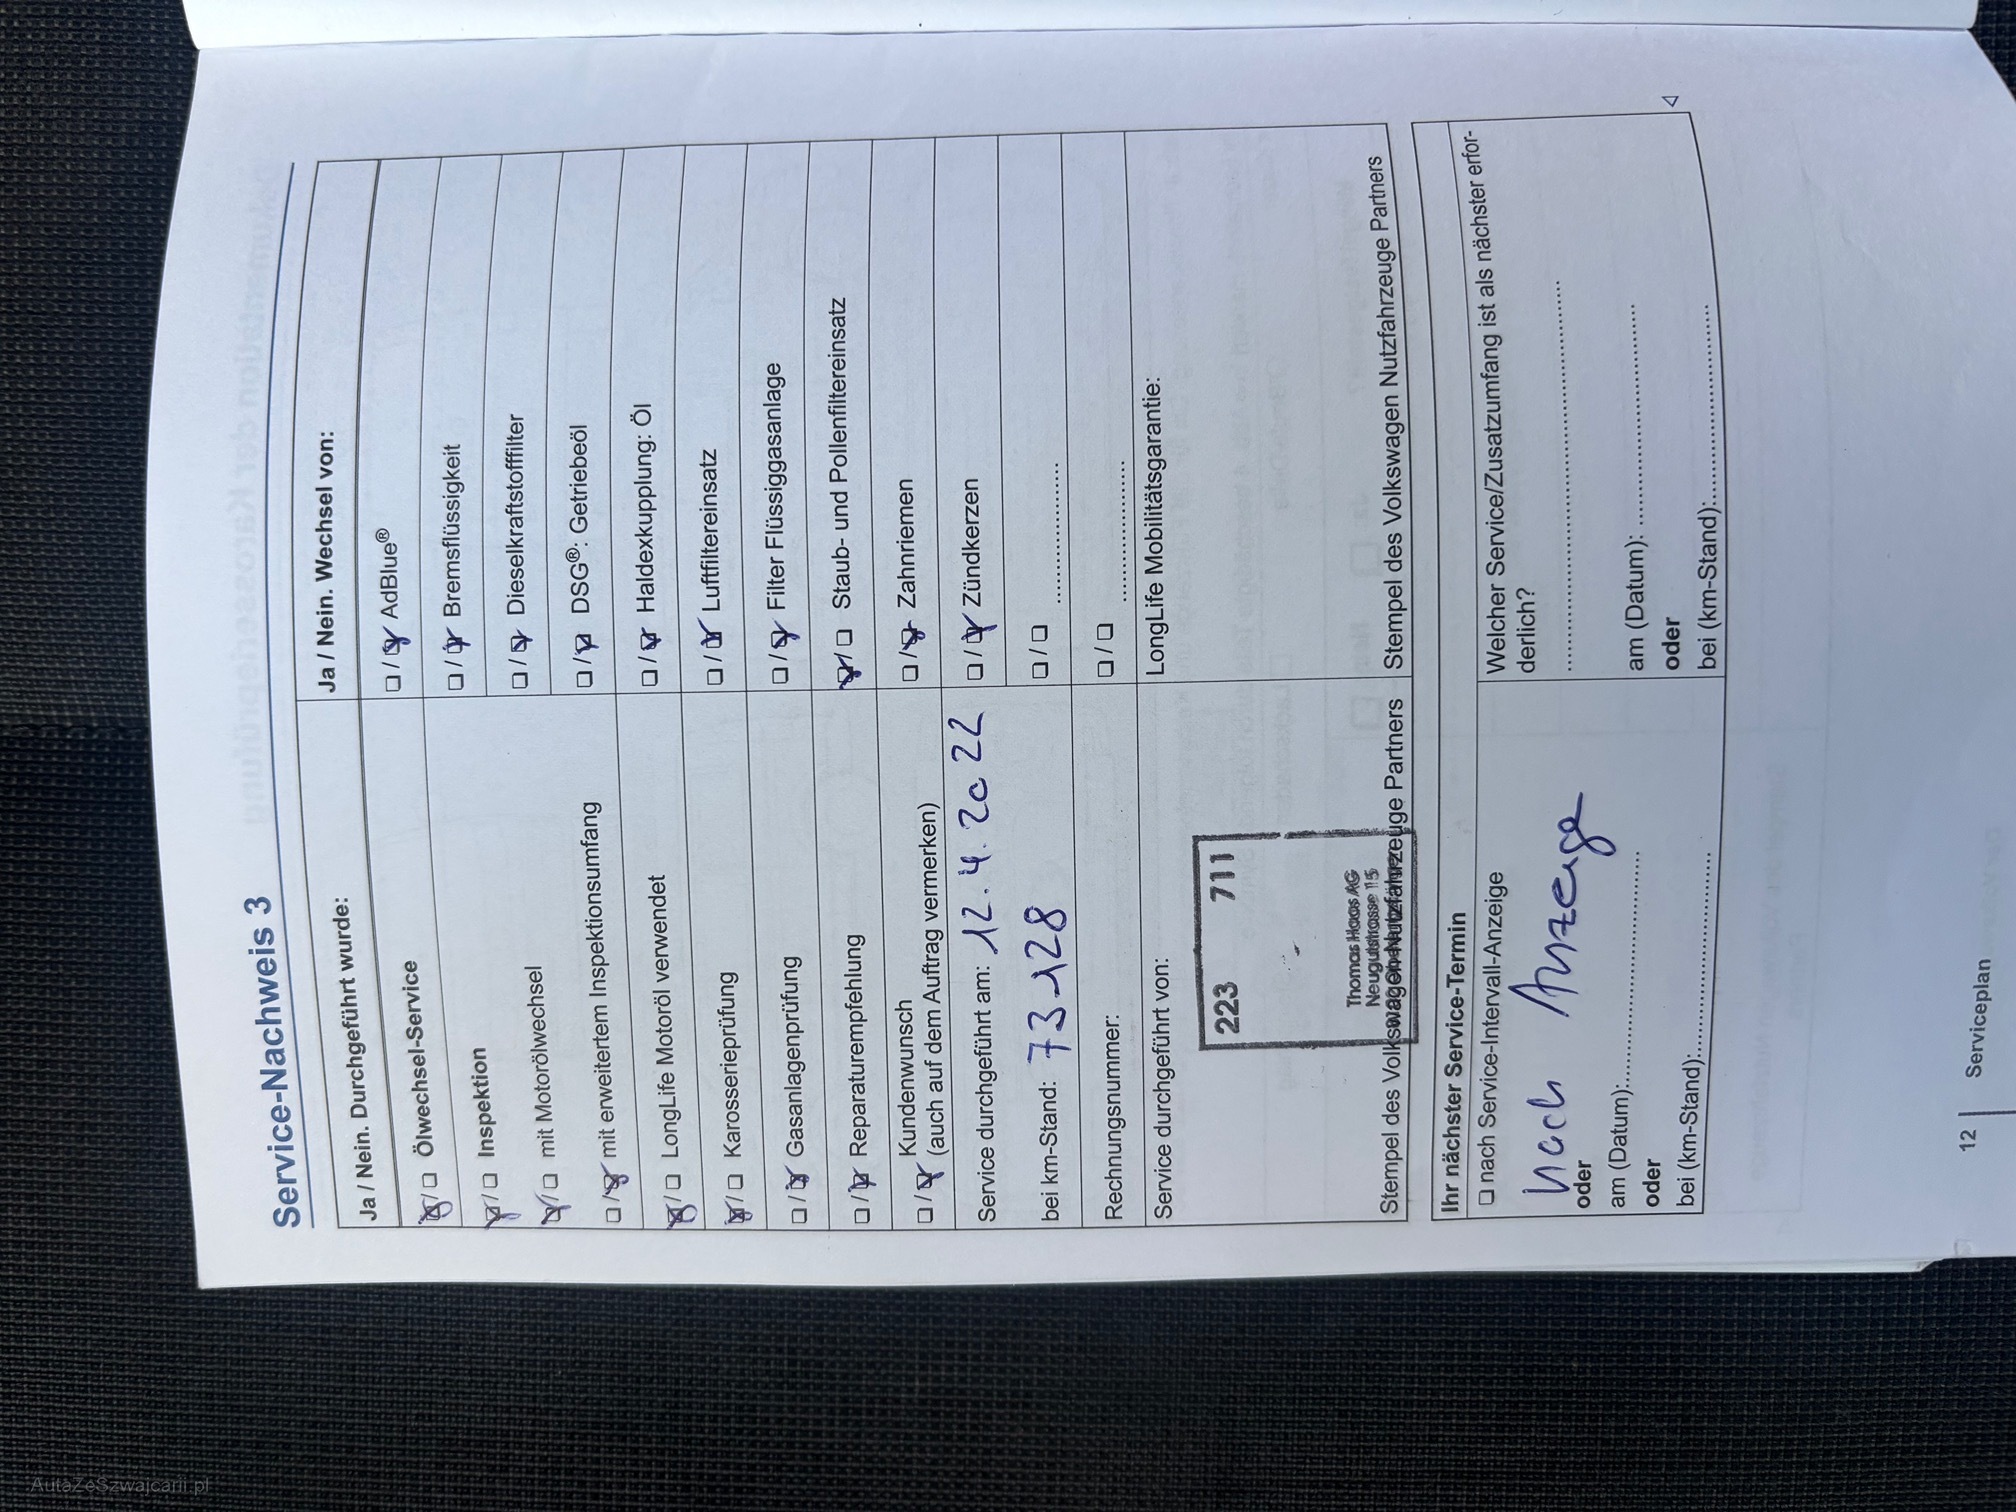 Service-Nachweis 3
Ja / Nein. Durchgeführt wurde:
☒/☐ Ölwechsel-Service
☒/☐ Inspektion
☒/☐ mit Motorölwechsel
☐/☒ mit erweitertem Inspektionsumfang
☒/☐ LongLife Motoröl verwendet
☒/☐ Karosserieprüfung
☐/☒ Gasanlagenprüfung
☐/☒ Reparaturempfehlung
☐/☒ Kundenwunsch
(auch auf dem Auftrag vermerken)
Service durchgeführt am: 12.4.2022
bei km-Stand: 73128
Rechnungsnummer:
Service durchgeführt von:
223 711
Thomas Haas AG
Stempel des Volkswagen Nutzfahrzeuge Partners
Ja / Nein. Wechsel von:
☐/☒ AdBlue®
☐/☒ Bremsflüssigkeit
☐/☒ Dieselkraftstofffilter
☐/☒ DSG®: Getriebeöl
☐/☒ Haldexkupplung: Öl
☐/☒ Luftfiltereinsatz
☐/☒ Filter Flüssiggasanlage
☒/☐ Staub- und Pollenfiltereinsatz
☐/☒ Zahnriemen
☐/☒ Zündkerzen
☐/☐ ....................
☐/☐ ....................
LongLife Mobilitätsgarantie:
Stempel des Volkswagen Nutzfahrzeuge Partners
Ihr nächster Service-Termin
☐ nach Service-Intervall-Anzeige
nach Anzeige
oder
am (Datum):....................
oder
bei (km-Stand):....................
Welcher Service/Zusatzumfang ist als nächster erfor-
derlich?
....................
am (Datum): ....................
oder
bei (km-Stand):....................
◁
12 Serviceplan
AutaZeSzwajcarii.pl